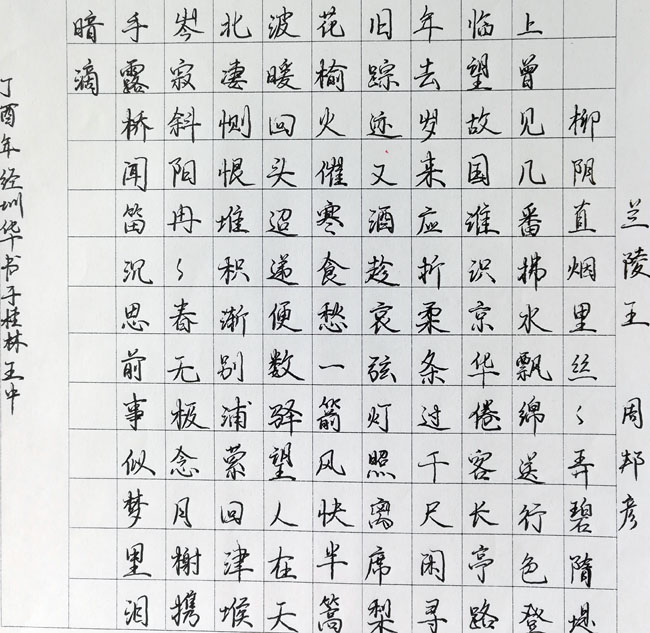 兰陵王 周邦彦
柳阴直烟里丝々弄碧隋堤
上曾见几番拂水飘绵送行色登
临望故国谁识京华倦客长亭路
年去岁来应折柔条过千尺闲寻
旧踪迹又酒趁哀弦灯照离席梨
花榆火催寒食愁一箭风快半篙
波暖回头迢递便数驿望人在天
北凄恻恨堆积渐别浦萦回津堠
岑寂斜阳冉々春无极念月榭携
手露桥闻笛沉思前事似梦里泪
暗滴
丁酉年经圳华书于桂林王中